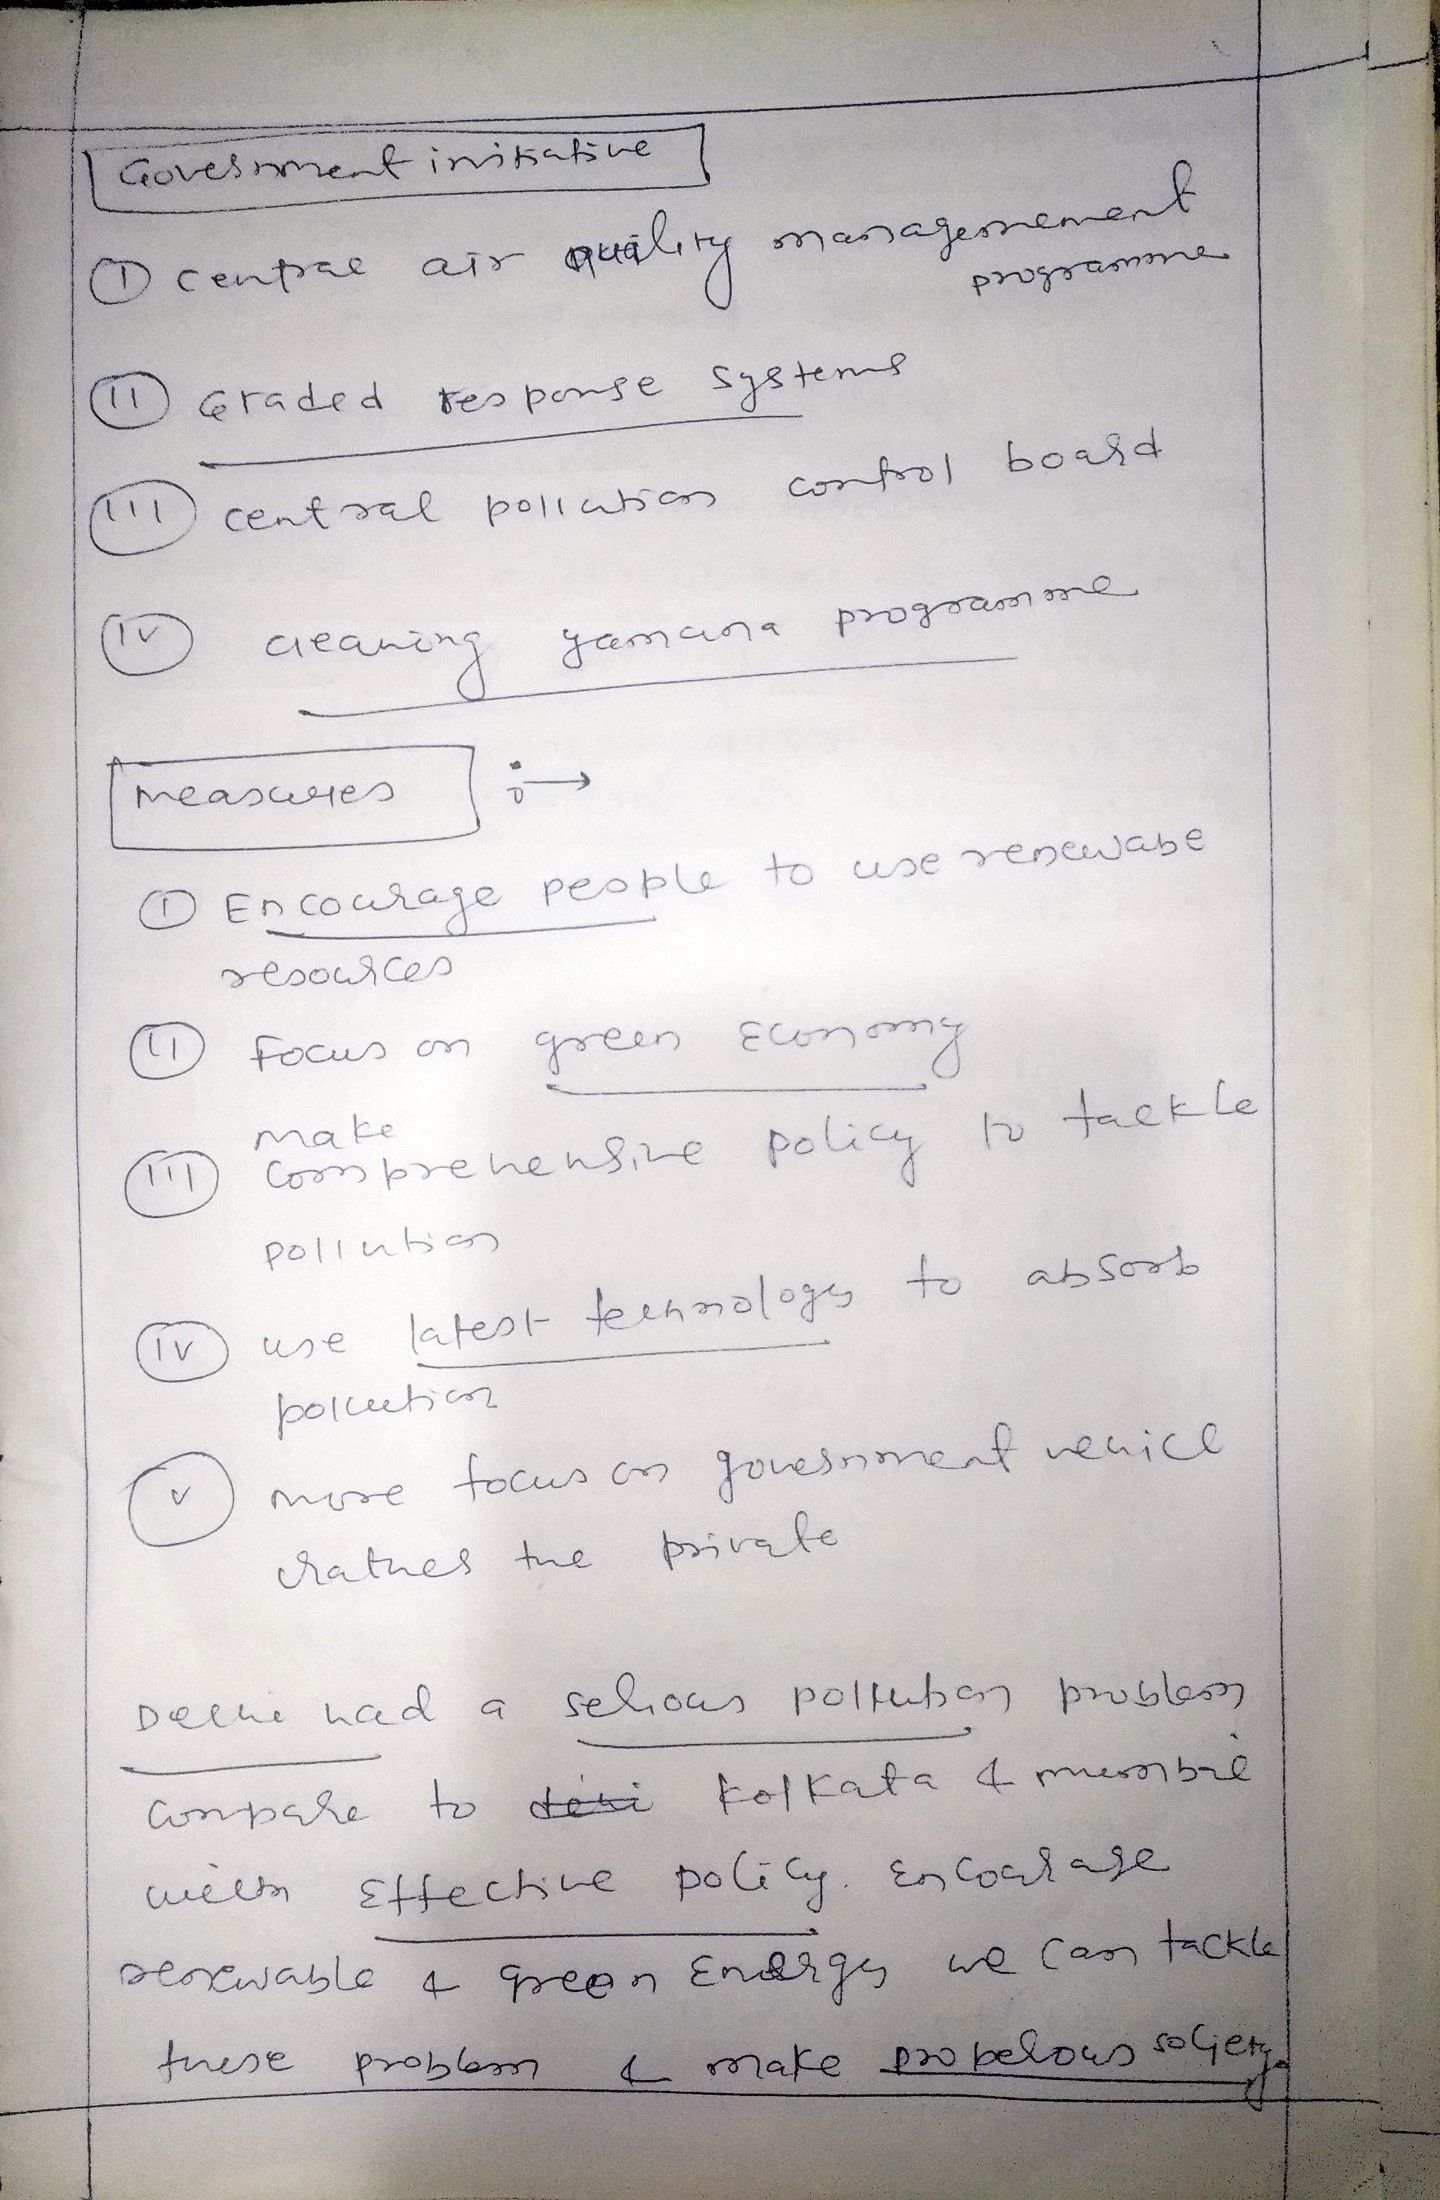 Government initiative
I central air quality managemement
programme
II Graded response systems
III central pollution control board
IV cleaning yamuna programme
measures :→
I Encourage people to use renewabe
resources
II Focus on green Economy
make
III comprehensive policy to tackle
pollution
IV use latest technology to absorb
pollution
V more focus on government vehicl
rather the private
Delhi had a serious pollution problem
compare to Kolkata & mumbai
with Effective policy. Encourage
renewable & green Energy we can tackle
these problem & make properous society.